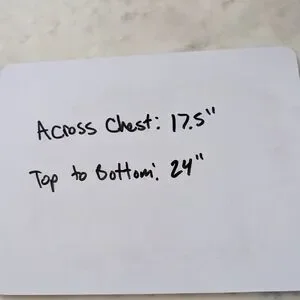 Across Chest: 17.5"
Top to Bottom: 24"